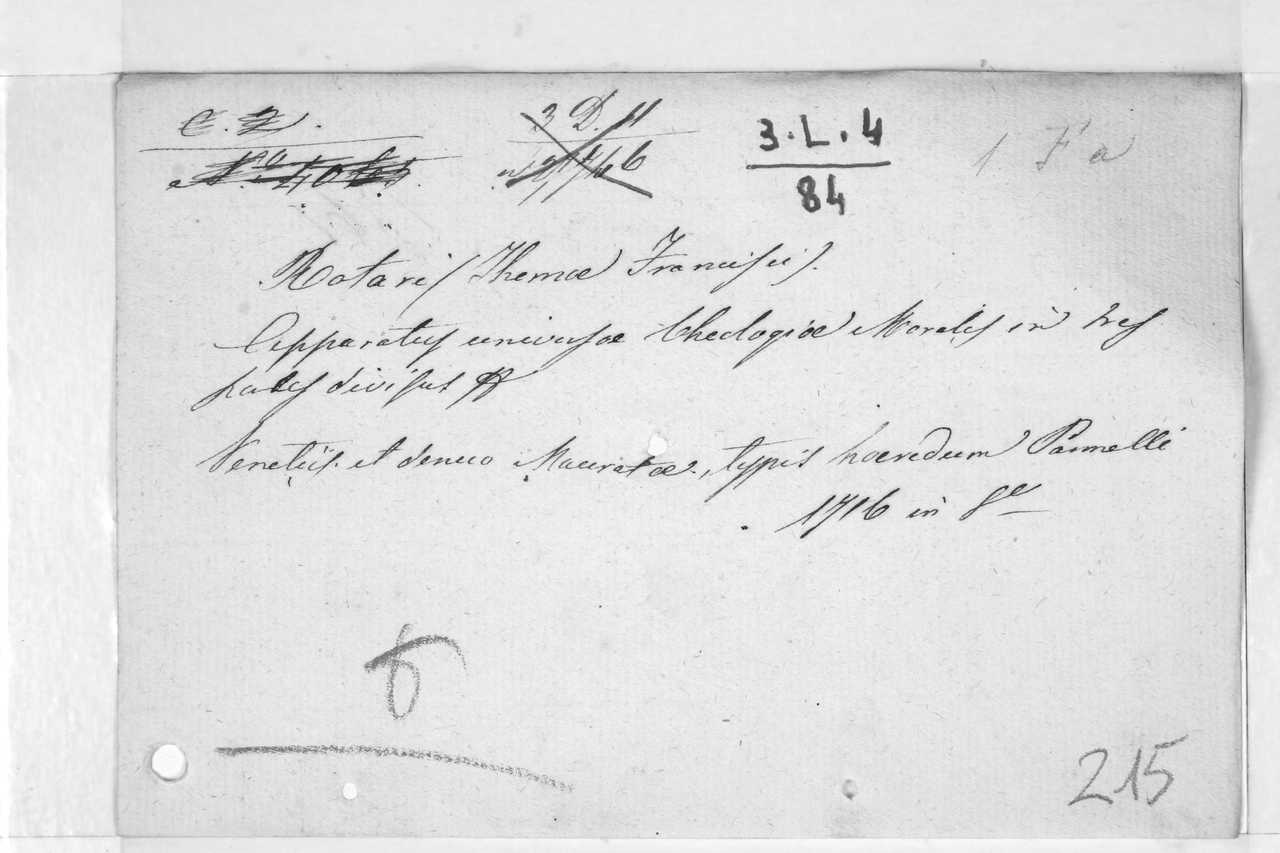 C. Z.
3 D. 11
3.L.4
84
1 Fa
Rotari (Thomæ Francisci).
Apparatus universæ theologiæ Moralis in tres
partes divisus
Venetiis et denuo Maceratæ, typis hœredum Pannelli
1716 in 8º
215